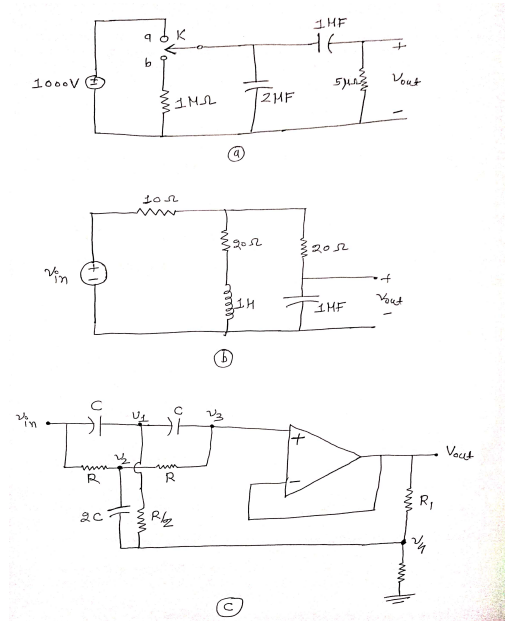 1MF
a
K
b
1000V
1MΩ
2MF
5MΩ
+
Vout
-
a
10Ω
20Ω
20Ω
Vin
+
-
1H
1MF
+
Vout
-
b
Vin
C
V1
C
V3
V2
R
R
2C
R/2
+
-
Vout
R1
V4
c